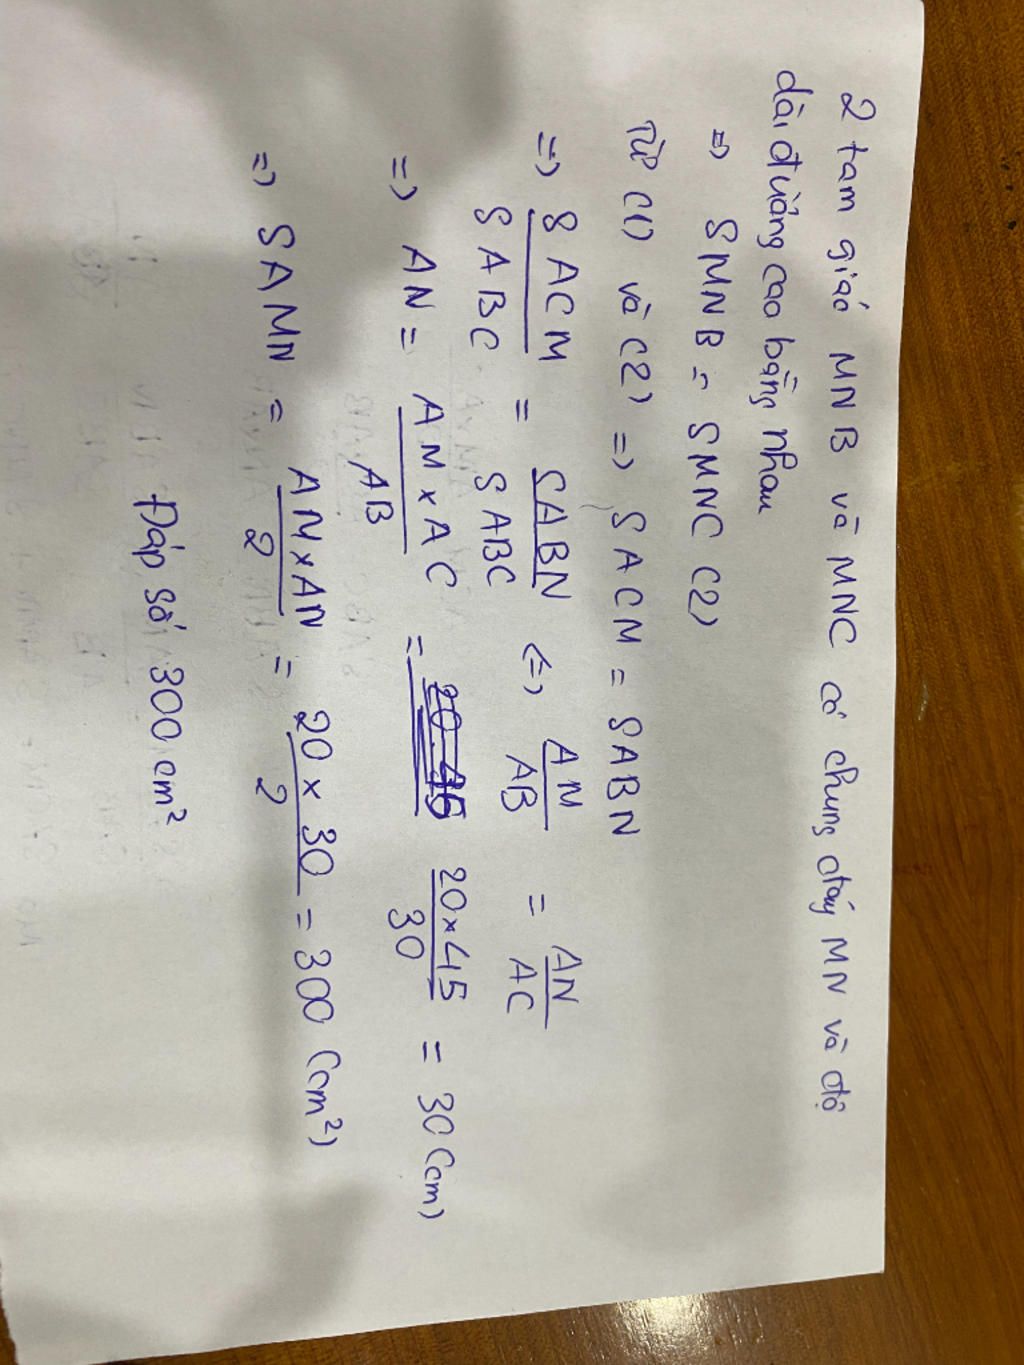 2 tam giác MNB và MNC có chung đáy MN và độ
dài đường cao bằng nhau
=> SMNB = SMNC (2)
Từ (1) và (2) => SACM = SABN
=> SACM / SABC = SABN / SABC <=> AN / AB = AN / AC
=> AN = AM x AC / AB = 20 x 45 / 30 = 30 (cm)
=> SAMN = AM x AN / 2 = 20 x 30 / 2 = 300 (cm²)
Đáp số 300 cm²